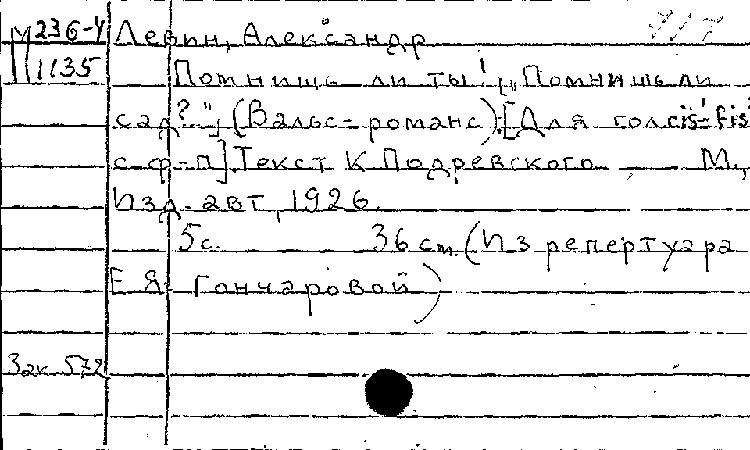 М 236-4 Левин, Александр
1135 Помнишь ли ты! „Помнишь ли
сад?.."; (Вальс-романс). [Для голcis'-fis'
с ф-п]. Текст К Подревского М.,
Изд. авт, 1926.
5с. 36 cm. (Из репертуара
Е. Я. Гончаровой)
Зак 572